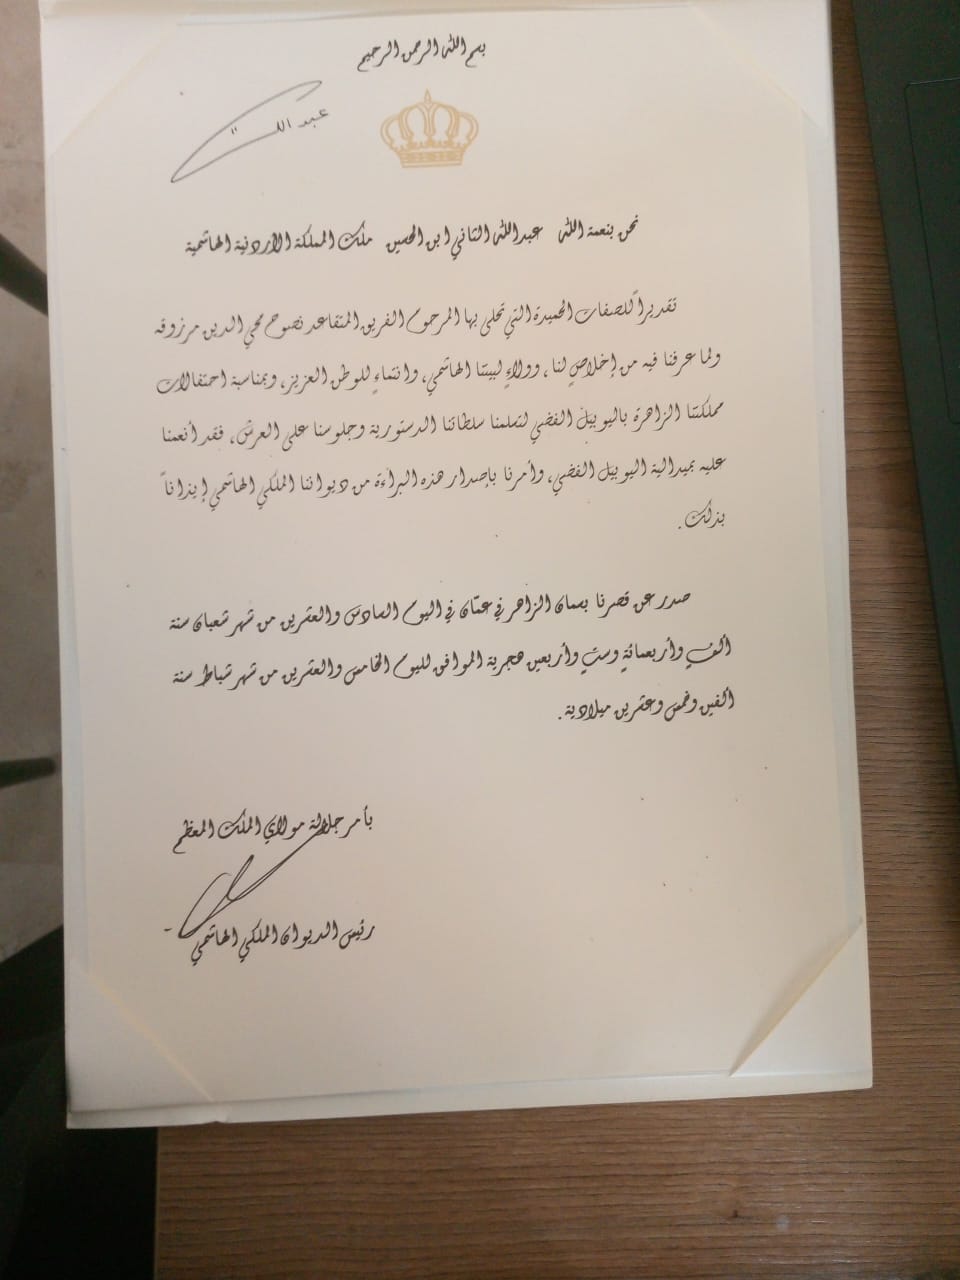 بسم الله الرحمن الرحيم
عبدالله
نحن بنعمة الله عبدالله الثاني ابن الحسين ملك المملكة الأردنية الهاشمية
تقديراً للصفات الحميدة التي تحلى بها المرحوم الفريق المتقاعد نصوح محي الدين مرزوقه
ولما عرفنا فيه من إخلاصٍ لنا، وولاءٍ لبيتنا الهاشمي، وانتماءٍ للوطن العزيز، وبمناسبة احتفالات
مملكتنا الزاهرة باليوبيل الفضي لتسلمنا سلطاتنا الدستورية وجلوسنا على العرش، فقد أنعمنا
عليه بميدالية اليوبيل الفضي، وأمرنا بإصدار هذه البراءة من ديواننا الملكي الهاشمي إيذاناً
بذلك.
صدر عن قصرنا بسمان الزاهر في عمّان في اليوم السادس والعشرين من شهر شعبان سنة
ألفٍ وأربعمائةٍ وستٍ وأربعين هجرية الموافق لليوم الخامس والعشرين من شهر شباط سنة
ألفين وخمس وعشرين ميلادية.
بأمر جلالة مولاي الملك المعظم
رئيس الديوان الملكي الهاشمي